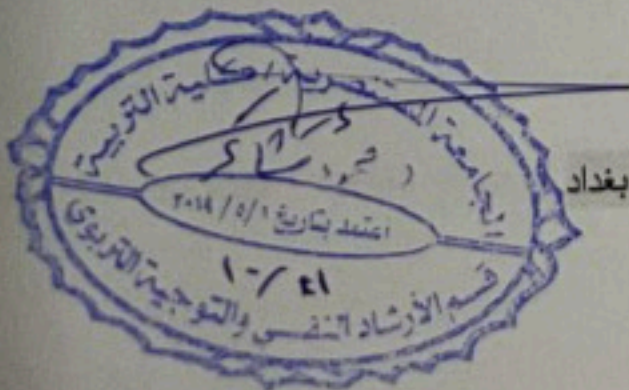 الجامعة المستنصرية / كلية التربية
اعتمد بتاريخ ٢٠١٨/٥/١
قسم الأرشاد النفسي والتوجية التربوي
بغداد